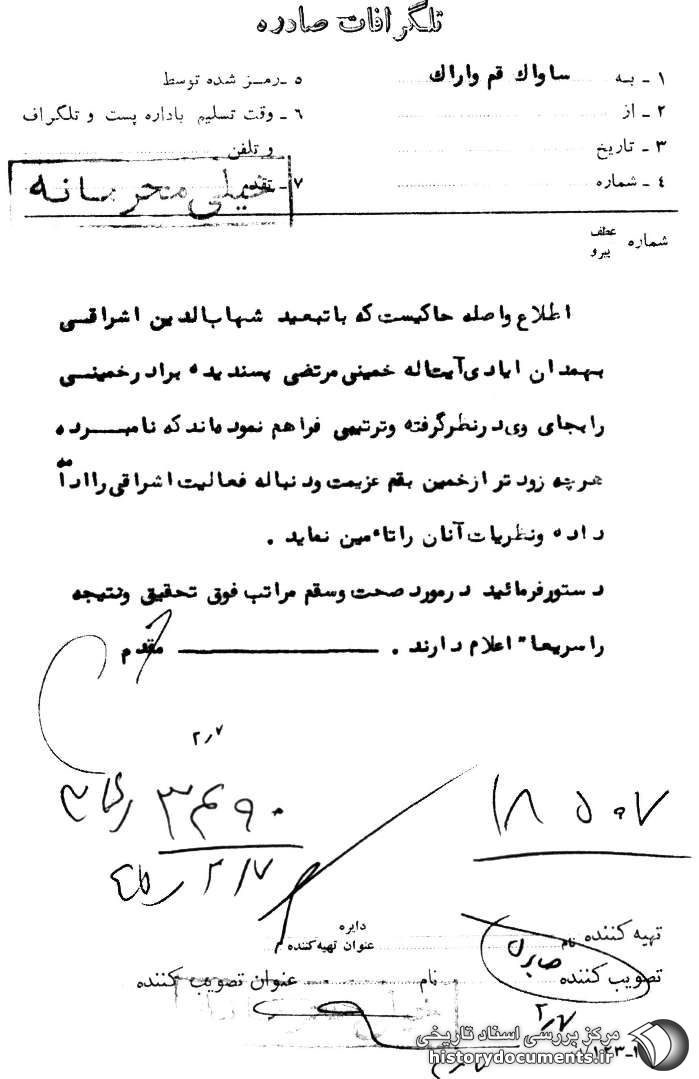 تلگرافات صادره
۱ - به ساواك قم واراك
۲ - از
۳ - تاریخ
۴ - شماره
۵ - رمز شده توسط
۶ - وقت تسلیم باداره پست و تلگراف
و تلفن
۷ - تقدم
خیلی محرمانه
شماره عطف
پیرو
اطلاع واصله حاکیست که با تبعید شهاب‌الدین اشراقی
بهمدان ایادی آیت‌اله خمینی مرتضی پسندیده برادر خمینی
را بجای وی در نظر گرفته و ترتیبی فراهم نموده‌اند که نامبرده
هرچه زود تر از خمین بقم عزیمت و دنباله فعالیت اشراقی را ادامه
داده و نظریات آنان را تاءمین نماید .
دستور فرمائید در مورد صحت و سقم مراتب فوق تحقیق و نتیجه
را سریعا" اعلام دارند . مقدم
۲٫۷
۳۴۹۰
۲/۷
تهیه کننده
نام
دایره
عنوان تهیه کننده
تصویب کننده
نام
عنوان تصویب کننده
صابری
۲٫۷
مرکز بررسی اسناد تاریخی
historydocuments.ir